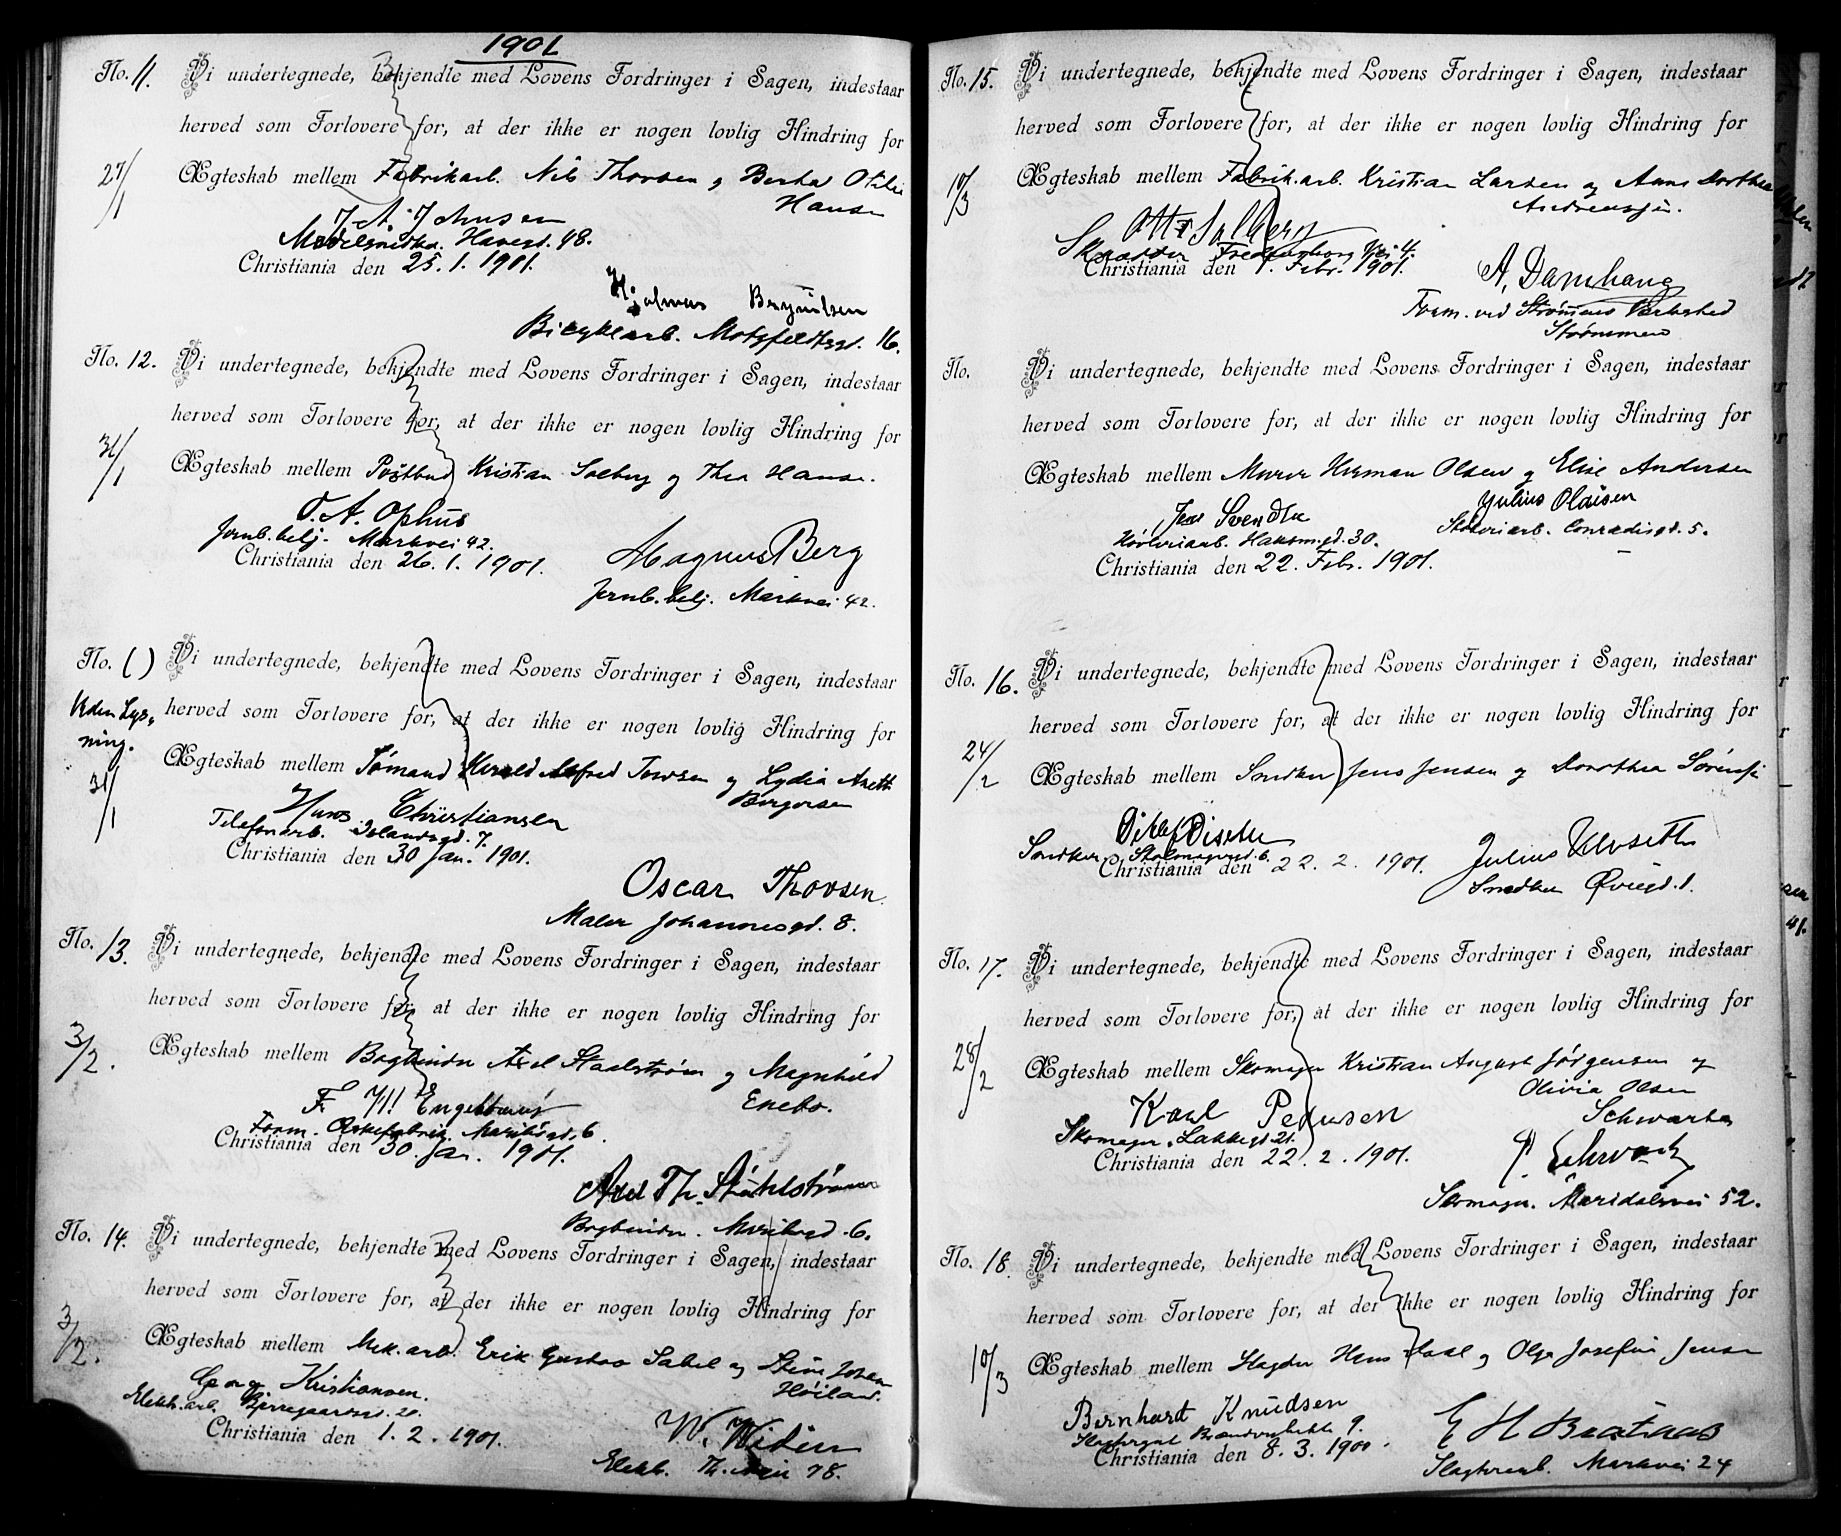 1901
No. 11. Vi undertegnede, bekjendte med Lovens Fordringer i Sagen, indestaar
herved som Forlovere for, at der ikke er nogen lovlig Hindring for
27/1
Ægteskab mellem Fabrikarb. Nils Thorsen og Berta Otilie
Hansen
J A Johnsen
Havegd. 48.
Christiania den 25.1.1901.
Hjalmar Brynilsen
Bicyklearb. Motzfeldtsgd. 16.
No. 12. Vi undertegnede, bekjendte med Lovens Fordringer i Sagen, indestaar
herved som Forlovere for, at der ikke er nogen lovlig Hindring for
31/1
Ægteskab mellem Postbud Kristian Solberg og Thea Hansen.
O. A. Ophus
Jernb.betj. Markvei 42.
Christiania den 26.1.1901.
Magnus Berg
Jernb.betj. Markvei 42.
No. ( ) Vi undertegnede, bekjendte med Lovens Fordringer i Sagen, indestaar
Uden Lys-
ning.
herved som Forlovere for, at der ikke er nogen lovlig Hindring for
31/1
Ægteskab mellem Sømand Harald Alfred Towsen og Lydia Anette
Borgersen
Hans Christiansen
Telefonarb. Islandsgd. 7.
Christiania den 30 Jan. 1901.
Oscar Thovsen
Maler Johannesgd. 8.
No. 13. Vi undertegnede, bekjendte med Lovens Fordringer i Sagen, indestaar
herved som Forlovere for, at der ikke er nogen lovlig Hindring for
3/2.
Ægteskab mellem Bogbinder Axel Staalstrøm og Magnhild
Enebo.
F. W. Engebretsen
Form. Æskefabrik. 6.
Christiania den 30. Jan. 1901.
Axel Th. Ståhlström
Bogbinder. 6.
No. 14. Vi undertegnede, bekjendte med Lovens Fordringer i Sagen, indestaar
herved som Forlovere for, at der ikke er nogen lovlig Hindring for
3/2.
Ægteskab mellem Mek.arb. Erik Gustav Sabel og Stine Johanne
Høiland.
Georg Kristiansen.
Elektr.arb. Bjerregaardsgd. 20.
Christiania den 1.2.1901.
W. Widén
Elektr. 78.
No. 15. Vi undertegnede, bekjendte med Lovens Fordringer i Sagen, indestaar
herved som Forlovere for, at der ikke er nogen lovlig Hindring for
10/3
Ægteskab mellem Fabrik.arb. Kristian Larsen og Anna Dorthea
Andreassen.
Otto Solberg
Skrædder Fredensborg Vei 4.
Christiania den 1. Febr. 1901.
A. Damhaug
Form. ved Strømmens Værksted
Strømmen
No. Vi undertegnede, bekjendte med Lovens Fordringer i Sagen, indestaar
herved som Forlovere for, at der ikke er nogen lovlig Hindring for
Ægteskab mellem Murer Herman Olsen og Elise Andersen
Jens Svendsen
Høvleriarb. 30.
Julius Olaisen
Støberiarb. Conradisgd. 5.
Christiania den 22. Febr. 1901.
No. 16. Vi undertegnede, bekjendte med Lovens Fordringer i Sagen, indestaar
herved som Forlovere for, at der ikke er nogen lovlig Hindring for
24/2
Ægteskab mellem Snedker Jens Jensen og Dorothea Sørensen
Snedker 6.
Christiania den 22.2.1901.
Julius Ulvseth
Snedker 1.
No. 17. Vi undertegnede, bekjendte med Lovens Fordringer i Sagen, indestaar
herved som Forlovere for, at der ikke er nogen lovlig Hindring for
28/2
Ægteskab mellem Skomager Kristian August Jørgensen og
Olivia Olsen
Schwartz
Karl Pedersen
Skomager. Lakkegd 21.
Christiania den 22.2.1901.
P. Schwartz
Skomager. Maridalsvei 52.
No. 18. Vi undertegnede, bekjendte med Lovens Fordringer i Sagen, indestaar
herved som Forlovere for, at der ikke er nogen lovlig Hindring for
10/3
Ægteskab mellem Slagter Hans Haal og Olga Josefine Jensen
Bernhard Knudsen
9.
Christiania den 8.3.1901.
E H Braataas
Slagterarb. Markvei 24